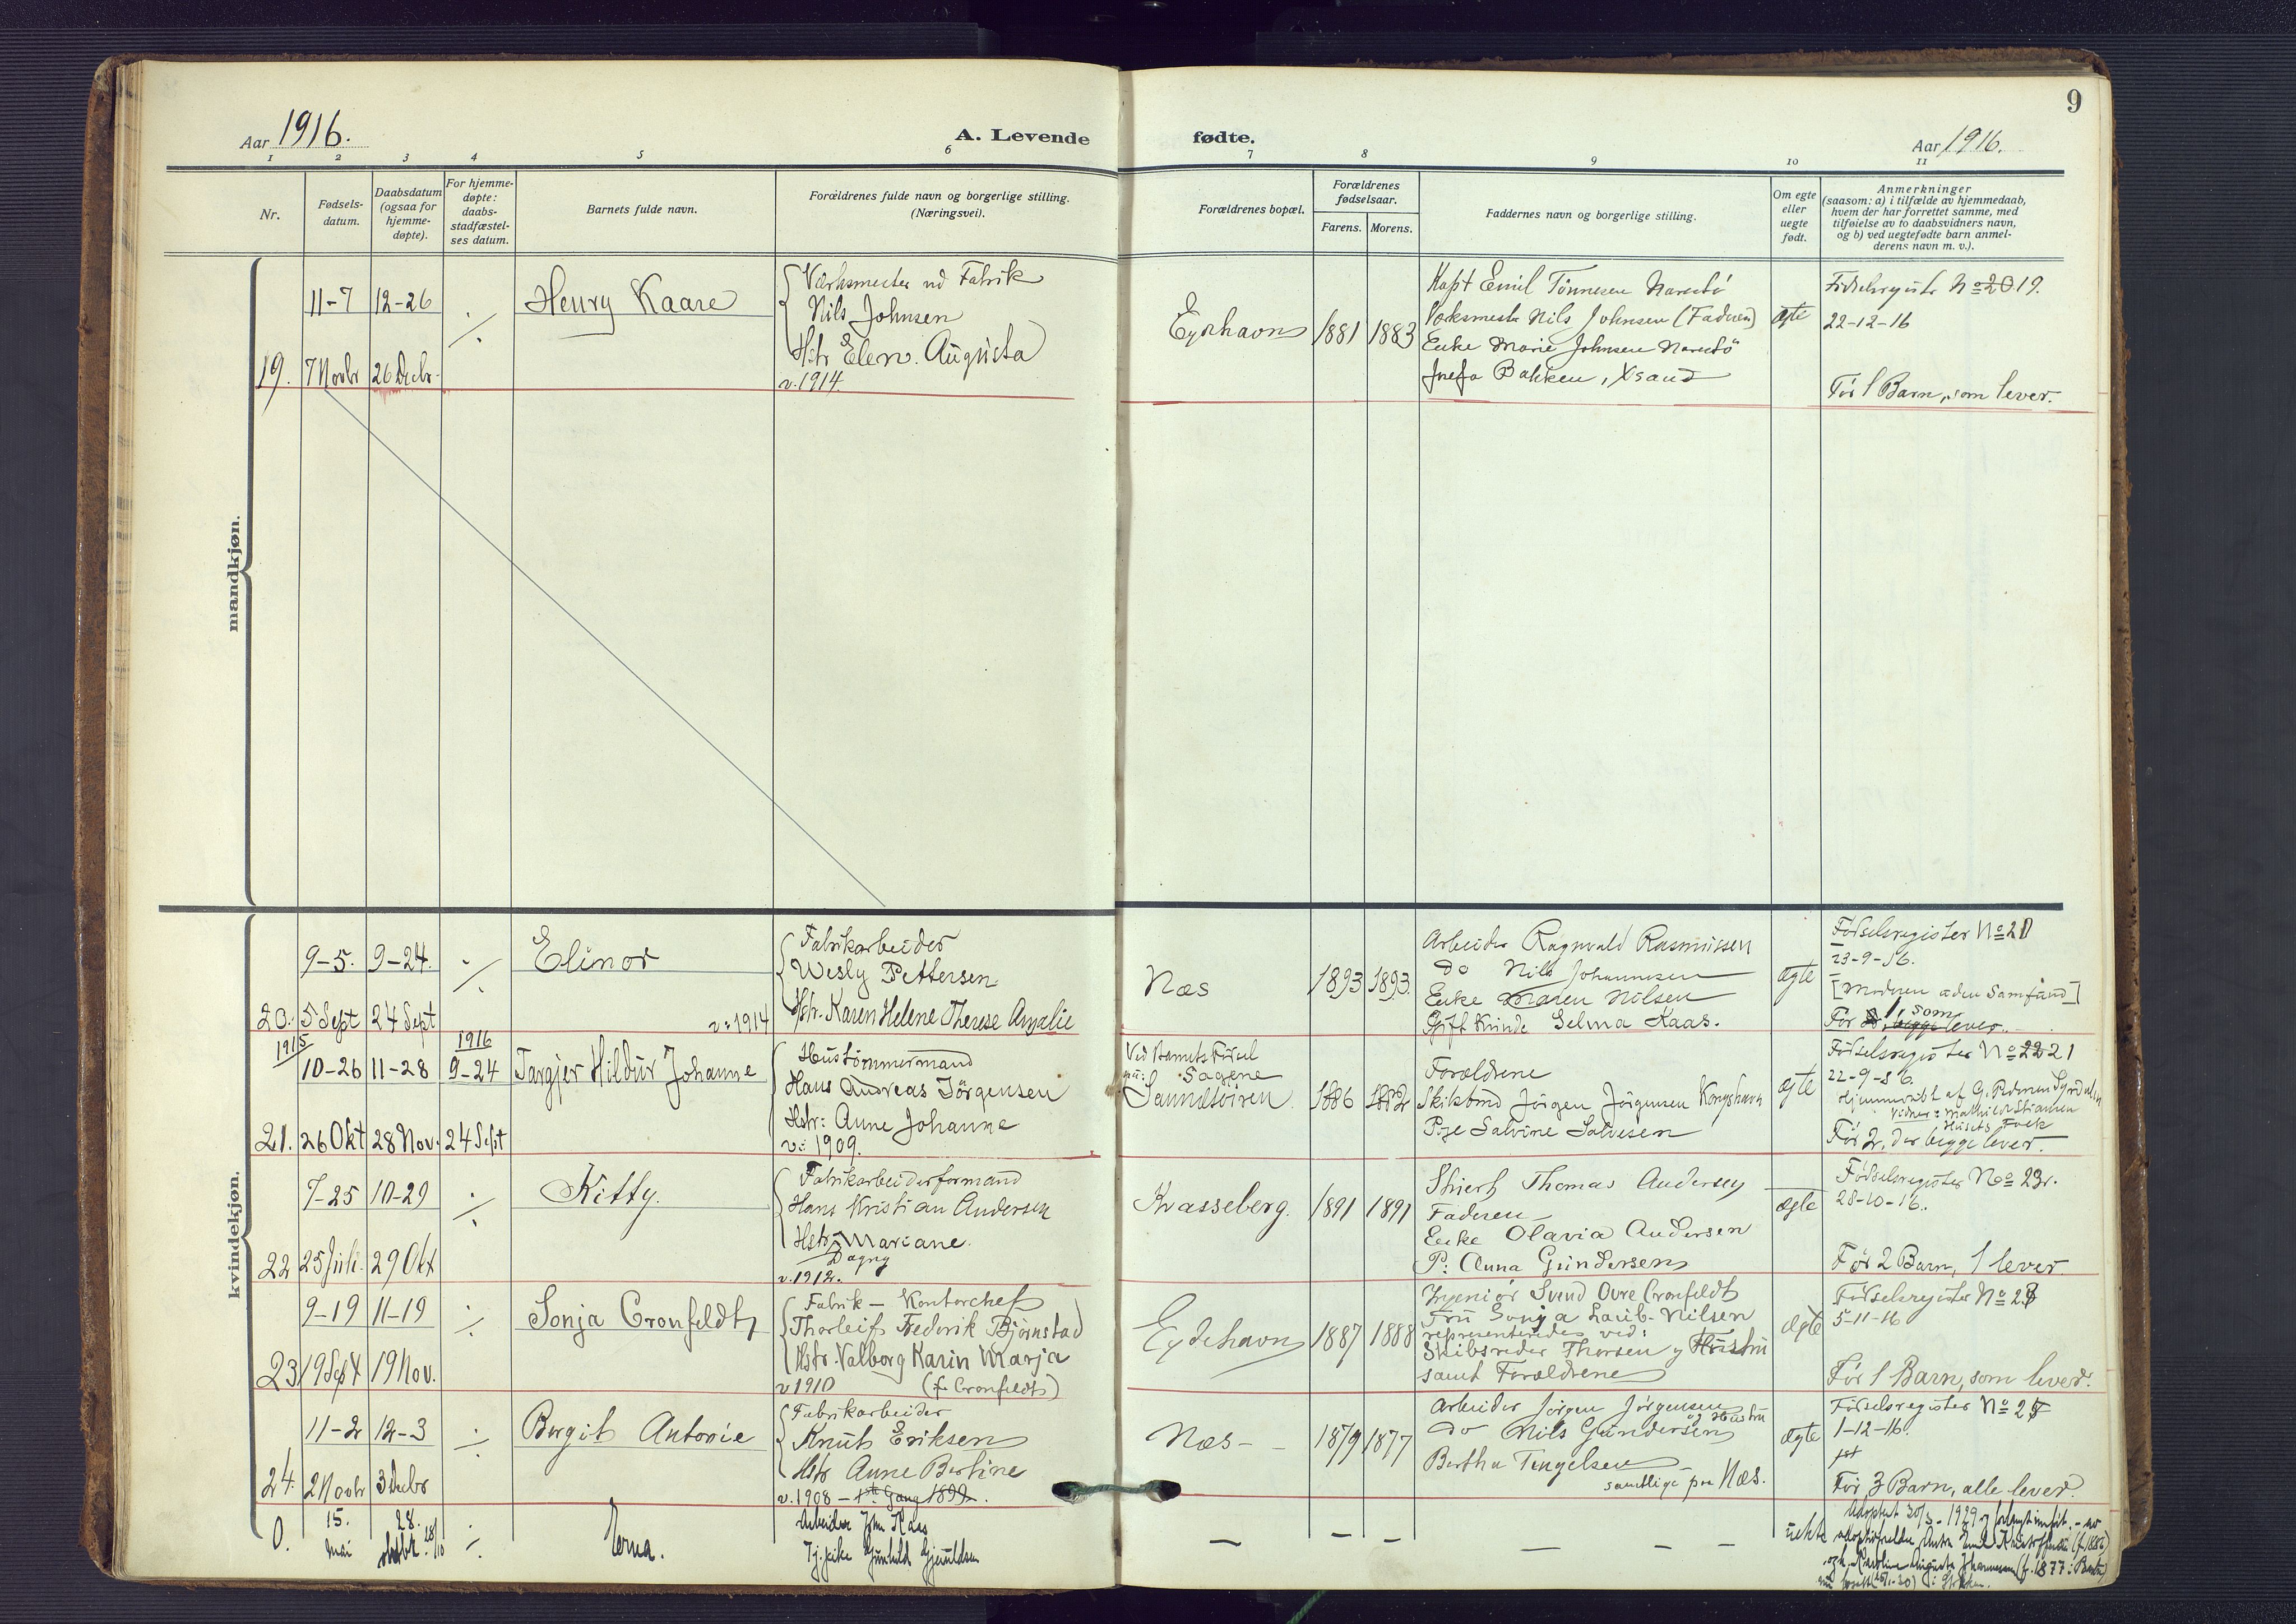 9
Aar 1916.
A. Levende
fødte.
Aar 1916.
1 2 3 4 5 6 7 8 9 10 11
Nr.
Fødsels-
datum.
Daabsdatum
(ogsaa for
hjemme-
døpte).
For hjemme-
døpte:
daabs-
stadfæstel-
ses datum.
Barnets fulde navn.
Forældrenes fulde navn og borgerlige stilling.
(Næringsvei).
Forældrenes bopæl.
Forældrenes
fødselsaar.
Farens. Morens.
Faddernes navn og borgerlige stilling.
Om egte
eller
uegte
født.
Anmerkninger
(saasom: a) i tilfælde av hjemmedaab,
hvem der har forrettet samme, med
tilføielse av to daabsvidners navn,
og b) ved uegtefødte barn anmel-
derens navn m. v.).
mandkjøn.
19.
11-7
7 Novbr
12-26
26 Decbr.
Henry Kaare
Værksmester ved Fabrik
Nils Johnsen
Hstr Elen Augusta
v. 1914
Eydehavn
1881
1883
Kapt Emil Tönnesen Narestö
Værksmester Nils Johnsen (Faderen)
Enke Marie Johnsen Narestö
Bakken, Xsand
ægte
Födselsregister No 20 19.
22-12-16
För 1 Barn, som lever.
kvindekjøn.
20.
9-5.
5 Sept
9-24.
24 Sept
Elinor
Fabrikarbeider
Wesly Pettersen
Hstr. Karen Helene Therese Amalie
v: 1914
Næs
1893
1893.
Arbeider Ragnvald Rasmussen
do Nils Johannesen
Enke Maren Nilsen
Gift Kvinde Selma Kaas.
ægte
Födselsregister No 20
23-9-16.
[Moderen aden Samfund]
För 1, som lever.
1915
21.
10-26
26 Okt
11-28
28 Nov.
1916
9-24
24 Sept
Targjer Hildur Johanne
Hustömmermand
Hans Andreas Jörgensen
Hstr: Anne Johanne
v: 1909.
Ved Barnets Födsel
Sagene
1886
1882
Forældrene
Skibtmd Jörgen Jörgensen Kongshavn
Pige Salvine Salvesen
ægte
Födselsregister No 22 21
22-9-16.
Hjemmedöbt af G. Pedersen
Vidner: Mathilde Stiansen
Husets Folk
För 2, der begge lever.
22
7-25
25 Juli.
10-29
29 Okt
Kitty.
Fabrikarbeiderformand
Hans Kristian Andersen
Hstr Mariane
Dagny
v. 1912.
Kvasseberg.
1891
1891
Thomas Andersen
Faderen
Enke Olavia Andersen
P: Anna Gundersen
ægte
Födselsregister No 22.
28-10-16.
För 2 Barn, 1 lever
23
9-19
19 Sept
11-19
19 Nov.
Sonja Cronfeldt
Fabrik - Kontorchef
Thorleif Frederik Björnstad
Hstr. Valborg Karin Marja
v 1910 (f. Cronfeldt)
Eydehavn
1887
1888
Ingeniör Svend Ovre Cronfeldt
Fru Sonja Laub-Nilsen
representeredes ved:
Skibsreder Thorsen og Hustru
samt Forældrene
ægte
Födselsregister No 23
5-11-16
För 1 Barn, som lever.
24.
11-2
2 Novbr
12-3
3 Decbr
Borgit Antonie
Fabrikarbeider
Knut Eriksen
Hstr Anne Bertine
v. 1908 - 1ste Gang 1899.
Næs -
1879
1877
Arbeider Jörgen Jörgensen
og Hustru
do Nils Gundersen
Bertha Tengelsen
samtlige pr Næs.
ægte
Födselsregister No 24
1-12-16.
För 3 Barn, alle lever.
0.
15.
mai
28.
oktbr. 28/10
Erna.
Arbeider John Kaas
Tj.pike Gunhild Gjeruldsen
uekte
Adoptert 30/3 - 1929
(f. 1886)
(f. 1877 i Barbu)